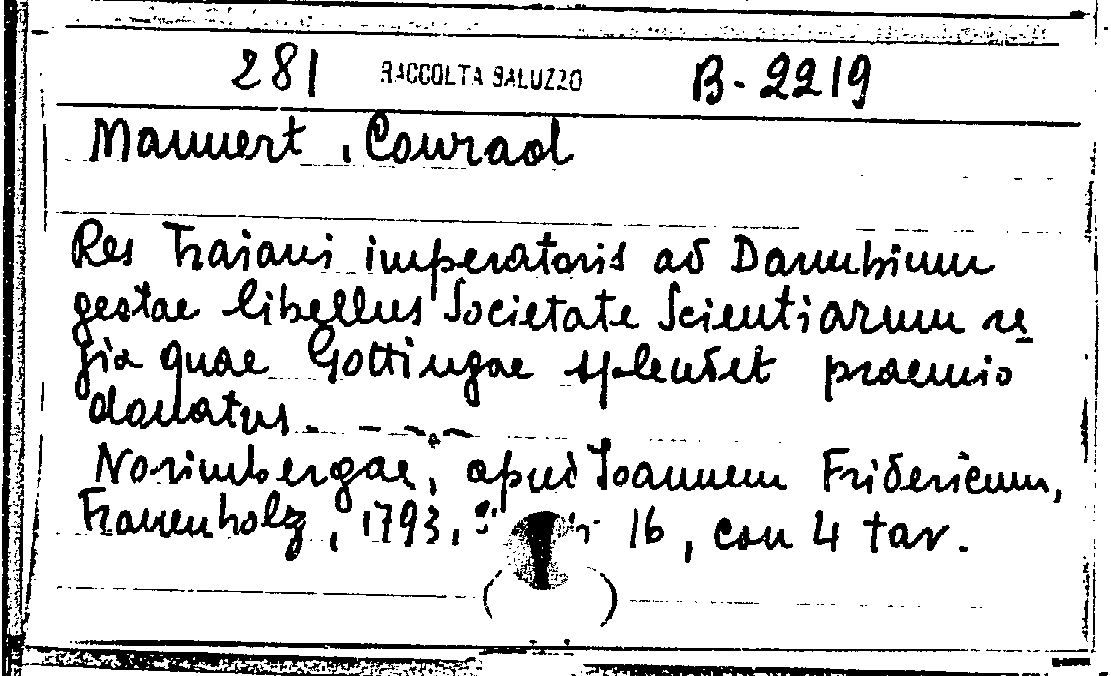 281 RACCOLTA SALUZZO B-2219
Mannert, Conrad
Res Traiani imperatoris ad Danubium
gestae libellus Societate Scientiarum re
gia quae Gottingae splendet praemio
donatus. — — —
Norimbergae, apud Ioannem Fridericum,
Frauenholz, 1793, 16, con 4 tav.